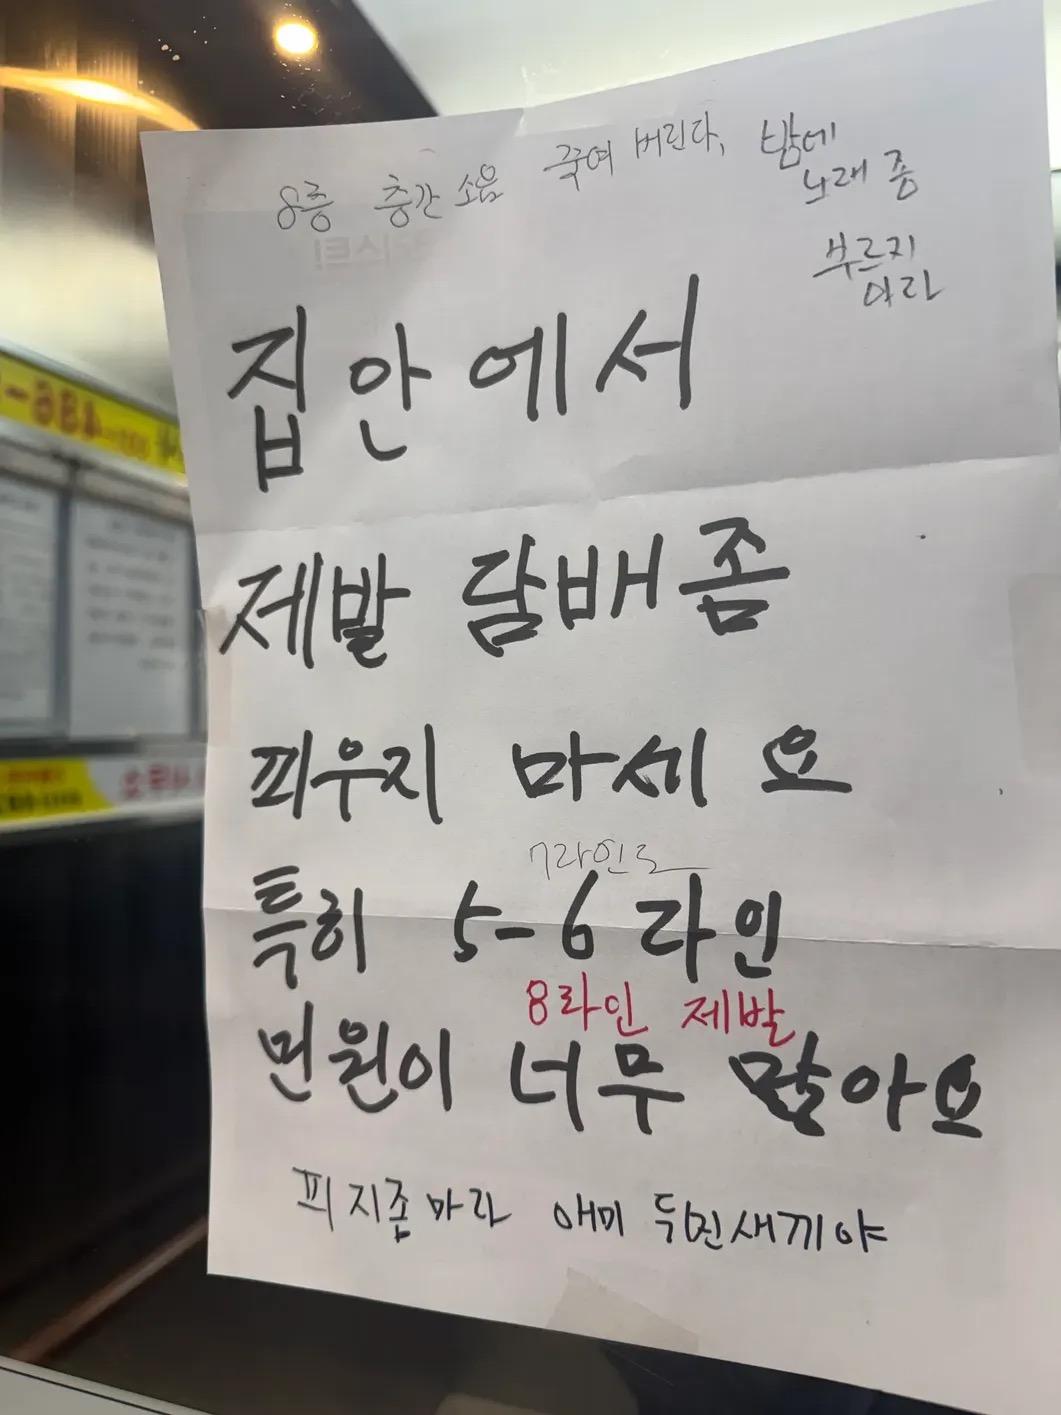 8층 층간 소음 죽여 버린다, 밤에
노래 좀
부르지
마라
집안에서
제발 담배좀
피우지 마세요
7라인도
특히 5-6라인
8라인 제발
민원이 너무 많아요
피지좀마라 애미 뒤진새끼야